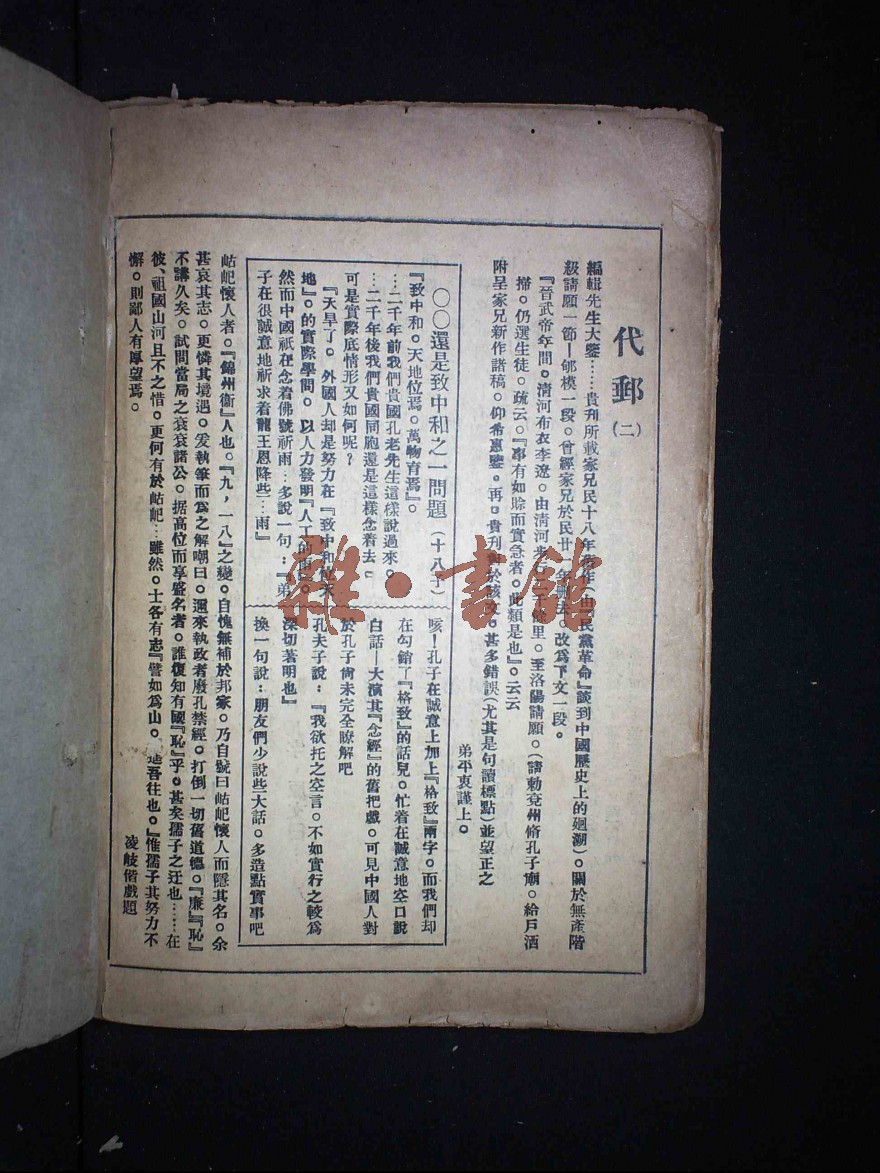 代郵(二)
編輯先生大鑒……貴刊所載家兄民十八年 作(由『民黨革命』談到中國歷史上的廻溯)。關於無產階
級請願一節—郇模一段。曾經家兄於民廿一年刪去。改爲下文一段。
『晉武帝年間。清河布衣李遼。由清河步 二千餘里。至洛陽請願。(請勅兗州脩孔子廟。給戶洒
掃。仍選生徒。疏云。『事有如賒而實急者。此類是也』。云云
附呈家兄新作諸稿。仰希惠鑒。再。貴刊 於該文。甚多錯誤(尤其是句讀標點)並望正之
弟平衷謹上。
〇〇還是致中和之一問題(十八 )
『致中和。天地位焉。萬物育焉』。
…二千年前我們貴國孔老先生這樣說過來。
…二千年後我們貴國同胞還是這樣念着去。
可是實際底情形又如何呢?
『天旱了。外國人却是努力在『致中和 天
地』。的實際學問。以人力發明『人工的雨』。
然而中國祇在念着佛號祈雨…多說一句:『弟
子在很誠意地祈求着龍王恩降些…雨』
咳!孔子在誠意上加上『格致』兩字。而我們却
在勾銷了『格致』的話兒。忙着在誠意地空口說
白話—大演其『念經』的舊把戲。可見中國人對
於孔子尙未完全瞭解吧
孔夫子說:『我欲托之空言。不如實行之較爲
深切著明也』
換一句說:朋友們少說些大話。多造點實事吧
岵屺懷人者。『錦州衞』人也。『九,一八』之變。自愧無補於邦家。乃自號曰岵屺懷人而隱其名。余
甚哀其志。更憐其境遇。爰執筆而爲之解嘲曰。邇來執政者廢孔禁經。打倒一切舊道德。『廉』『恥』
不講久矣。試問當局之袞袞諸公。据高位而享盛名者。誰復知有國『恥』乎。甚矣孺子之迂也……在
彼、祖國山河且不之惜。更何有於岵屺…雖然。士各有志『譬如爲山。 進吾往也。』惟孺子其努力不
懈。則鄙人有厚望焉。
凌岐偕戲題
雜·書館